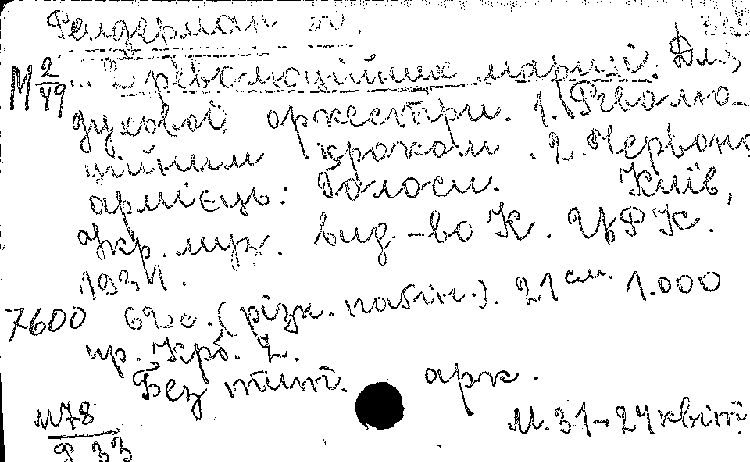 Фельдерман Ю.
М 2/49 .. 2 революційних марші. Для
духової оркестри. 1. Револю-
ційним кроком. 2. Червоно
армієць: Голоси. Київ,
Укр. муз. вид-во К. ЦРК.
1931.
7600 62 с. (різн. пагін.). 21 см. 1.000
пр. Крб. 2.
Без тит. арк.
М78
Ф 33
М. 31-24 квіт